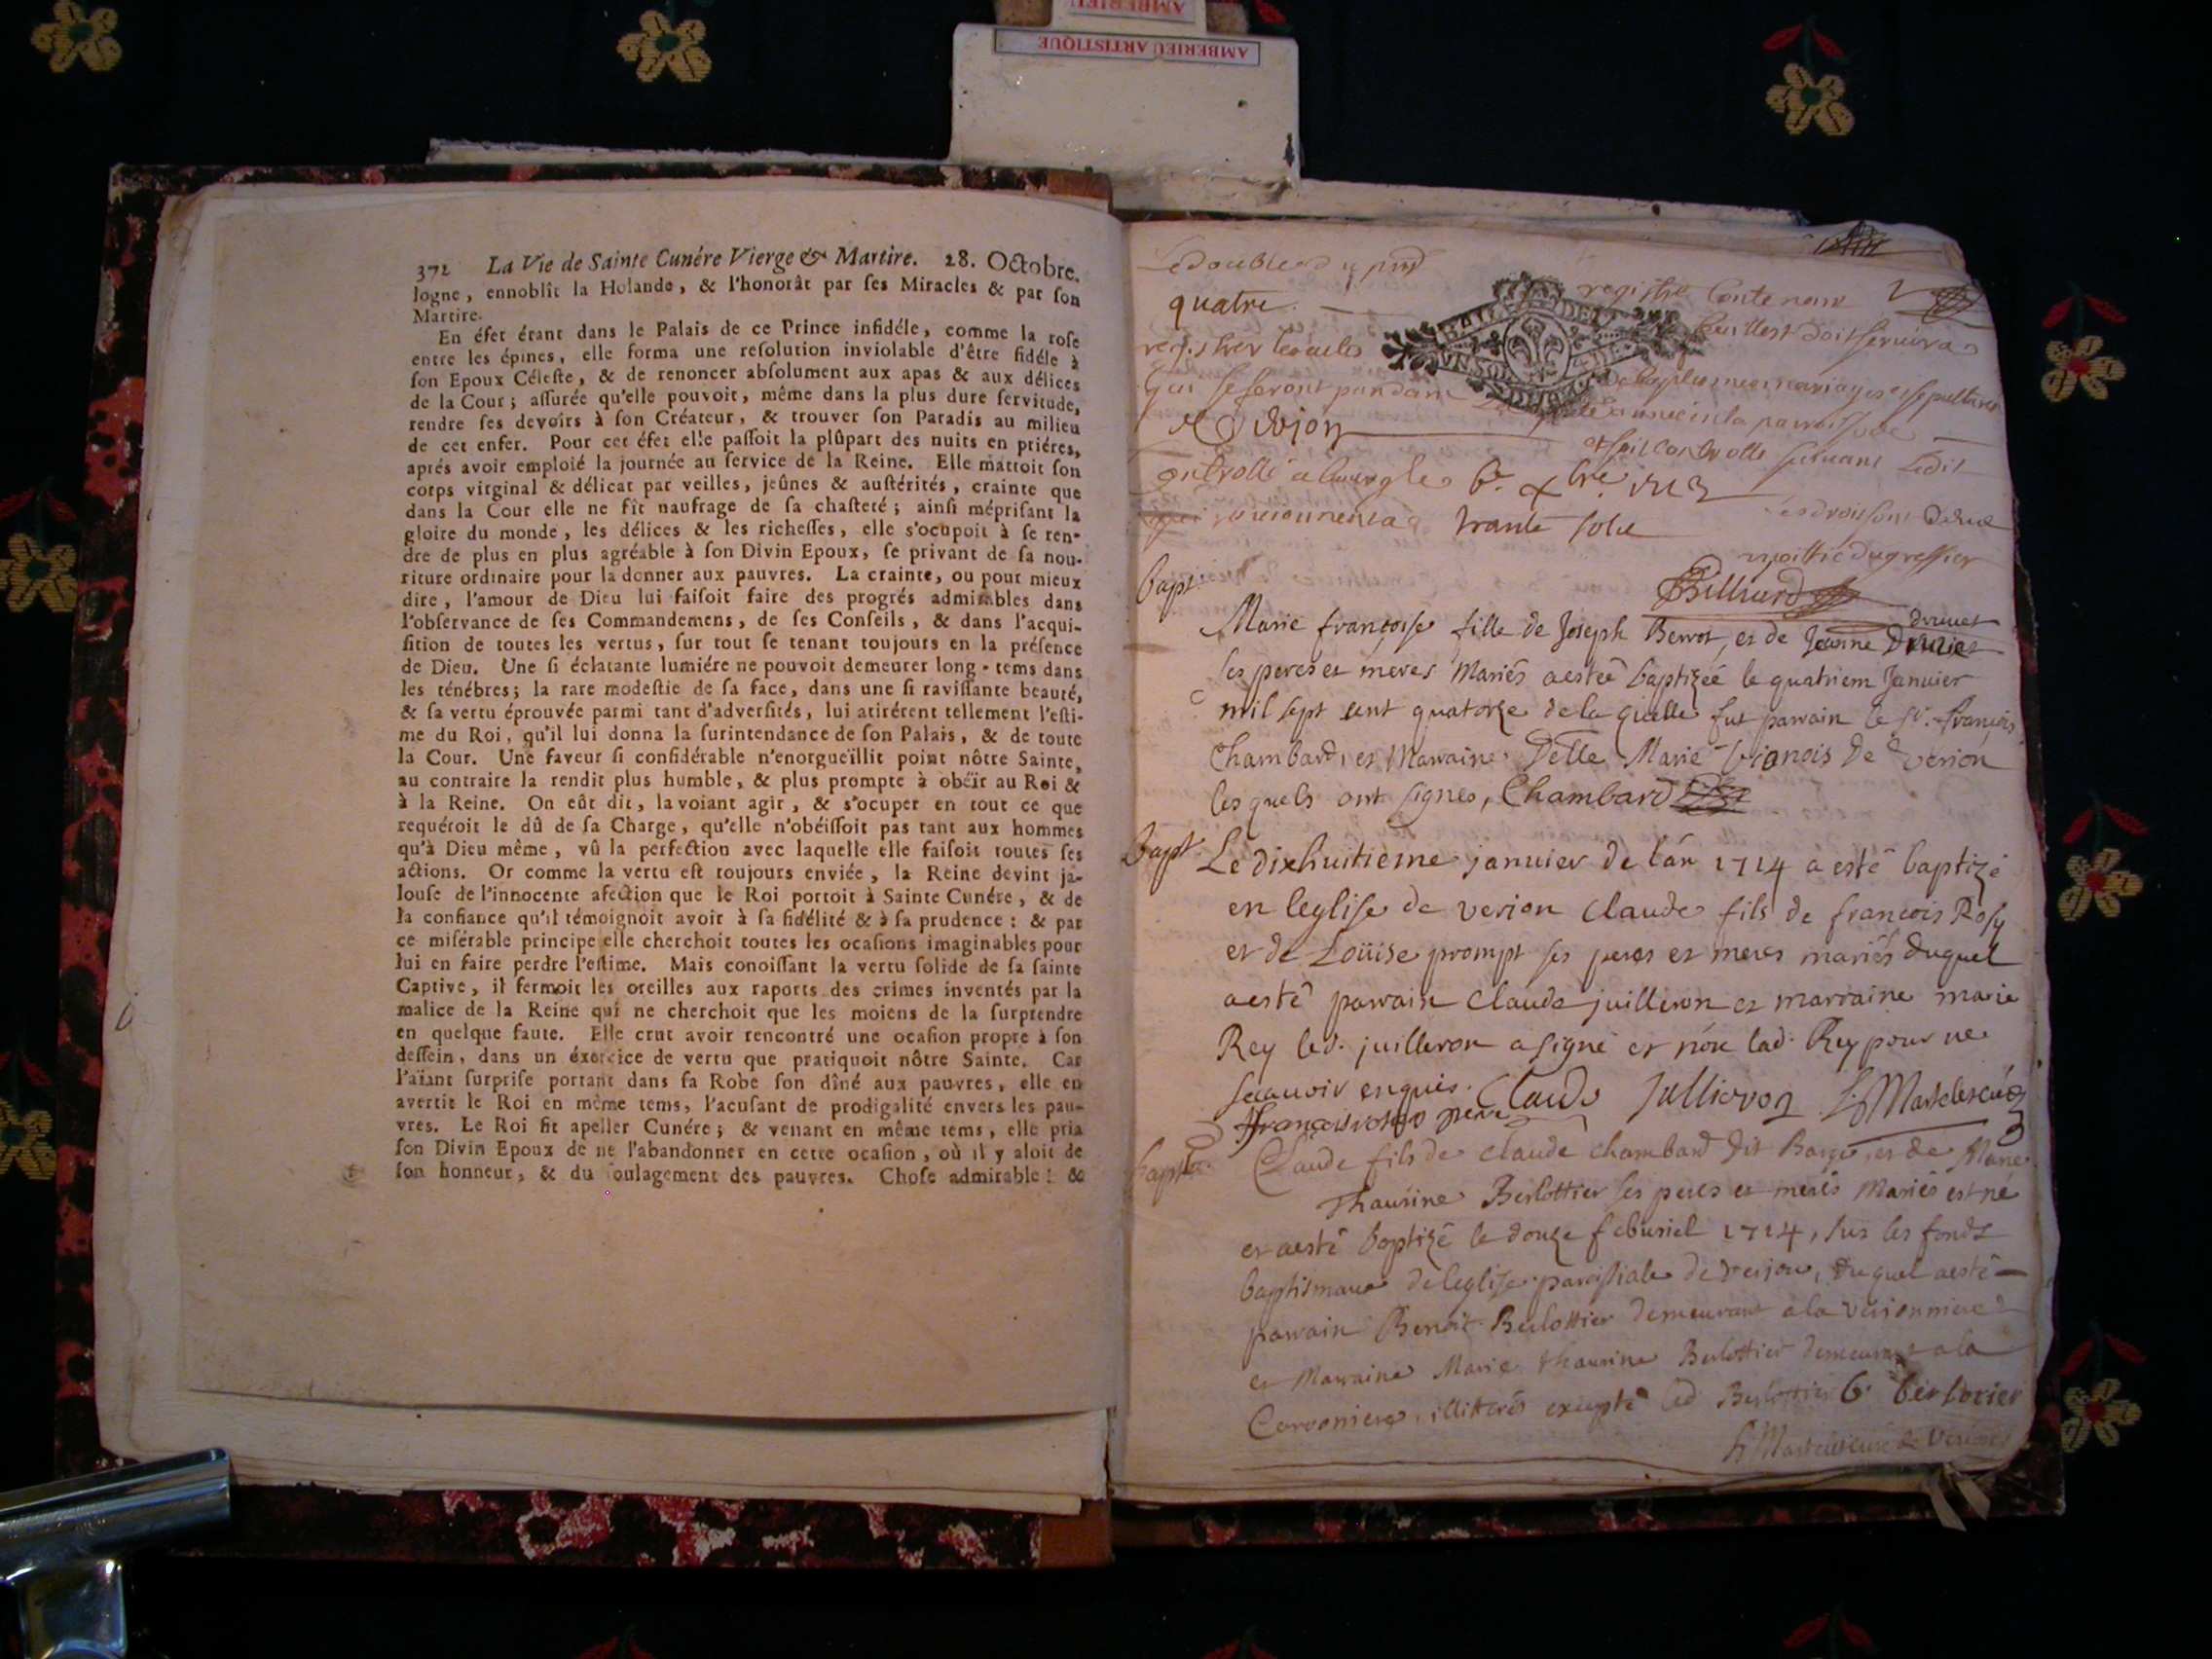 AMBERIEU
AMBERIEU ARTISTIQUE
372 La Vie de Sainte Cunére Vierge & Martire. 28. Octobre.
logne, ennoblît la Holande, & l'honorât par ſes Miracles & par ſon
Martire.
En éfet étant dans le Palais de ce Prince infidéle, comme la roſe
entre les épines, elle forma une reſolution inviolable d'être fidéle à
ſon Epoux Céleſte, & de renoncer abſolument aux apas & aux délices
de la Cour; aſſurée qu'elle pouvoit, même dans la plus dure ſervitude,
rendre ſes devoirs à ſon Créateur, & trouver ſon Paradis au milieu
de cet enfer. Pour cet éfet elle paſſoit la plûpart des nuits en priéres,
aprés avoir emploié la journée au ſervice de la Reine. Elle mattoit ſon
corps virginal & délicat par veilles, jeûnes & auſtérités, crainte que
dans la Cour elle ne fît naufrage de ſa chaſteté; ainſi mépriſant la
gloire du monde, les délices & les richeſſes, elle s'ocupoit à ſe ren-
dre de plus en plus agréable à ſon Divin Epoux, ſe privant de ſa nou-
riture ordinaire pour la donner aux pauvres. La crainte, ou pour mieux
dire, l'amour de Dieu lui faiſoit faire des progrés admirables dans
l'obſervance de ſes Commandemens, de ſes Conſeils, & dans l'acqui-
ſition de toutes les vertus, ſur tout ſe tenant toujours en la préſence
de Dieu. Une ſi éclatante lumiére ne pouvoit demeurer long-tems dans
les ténébres; la rare modeſtie de ſa face, dans une ſi raviſſante beauté,
& ſa vertu éprouvée parmi tant d'adverſités, lui atirérent tellement l'eſti-
me du Roi, qu'il lui donna la ſurintendance de ſon Palais, & de toute
la Cour. Une faveur ſi conſidérable n'enorgueïllit point nôtre Sainte,
au contraire la rendit plus humble, & plus prompte à obéïr au Roi &
à la Reine. On eût dit, la voiant agir, & s'ocuper en tout ce que
requéroit le dû de ſa Charge, qu'elle n'obéiſſoit pas tant aux hommes
qu'à Dieu même, vû la perfection avec laquelle elle faiſoit toutes ſes
actions. Or comme la vertu eſt toujours enviée, la Reine devint ja-
louſe de l'innocente afection que le Roi portoit à Sainte Cunére, & de
la confiance qu'il témoignoit avoir à ſa fidélité & à ſa prudence: & par
ce miſérable principe elle cherchoit toutes les ocaſions imaginables pour
lui en faire perdre l'eſtime. Mais conoiſſant la vertu ſolide de ſa ſainte
Captive, il fermoit les oreilles aux raports des crimes inventés par la
malice de la Reine qui ne cherchoit que les moiens de la ſurprendre
en quelque faute. Elle crut avoir rencontré une ocaſion propre à ſon
deſſein, dans un éxercice de vertu que pratiquoit nôtre Sainte. Car
l'aïant ſurpriſe portant dans ſa Robe ſon dîné aux pauvres, elle en
avertit le Roi en même tems, l'acuſant de prodigalité envers les pau-
vres. Le Roi fit apeller Cunére; & venant en même tems, elle pria
ſon Divin Epoux de ne l'abandonner en cette ocaſion, où il y aloit de
ſon honneur, & du ſoulagement des pauvres. Choſe admirable! &
registre Contenant
quatre
feuillest doit servir a
qui se feront pandant
baptesmes mariages et sepultures
année en la parroisse de
Verjon
suivant Ledit
1713
trante sols
moittié du greffier
Billiard
bapt.
Marie françoise fille de Joseph Berrot, et de Jeanne Druuet
ses peres et meres Mariés aestée baptizéé le quatriem Janvier
mil sept cent quatorze de la quelle fut parrain le Sr. françois
Chambard, et Marraine Delle Marie de Verion
lesquels ont signes, Chambard
bapt. Le dixhuitieme janvier de lan 1714 a esté baptizé
en leglise de verion Claude fils de francois Rosy
et de Loüise prompt ses peres et meres mariés duquel
a esté parrain Claude juilleron et marraine marie
Rey led. juilleron a signé et non lad. Rey pour ne
scauoir enquis. Claude Jullieron
françois pere
bapt. Claude fils de Claude Chambard dit et de Marie
Thaurine Berlottier ses peres et meres Mariés est né
et aesté baptizé le douze feburiel 1714, sus les fonds
baptismaux de leglise paroissiale de Verjon, duquel aesté
parrain Benoit Berlottier demeurant a la Verionniere
et Marraine Marie thaurine Berlottier demeurant a la
illitterés excepté led Berlottier b. berlotier